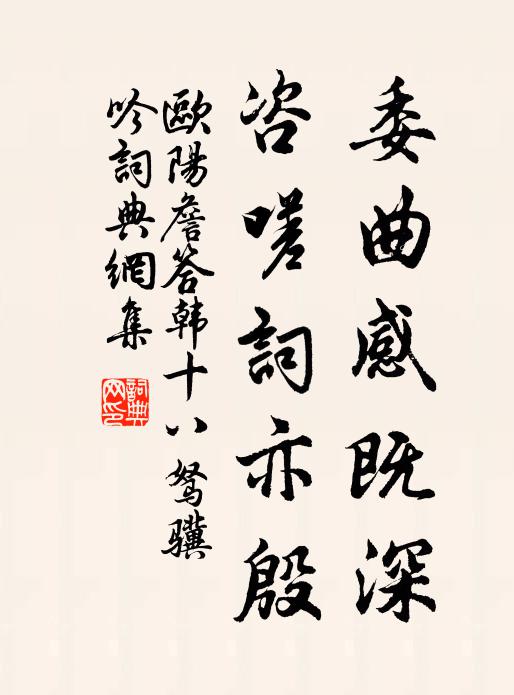 委曲感既深
咨嗟詞亦殷
歐陽詹答韩十八驽骥
吟詞典網集
詞典
网印